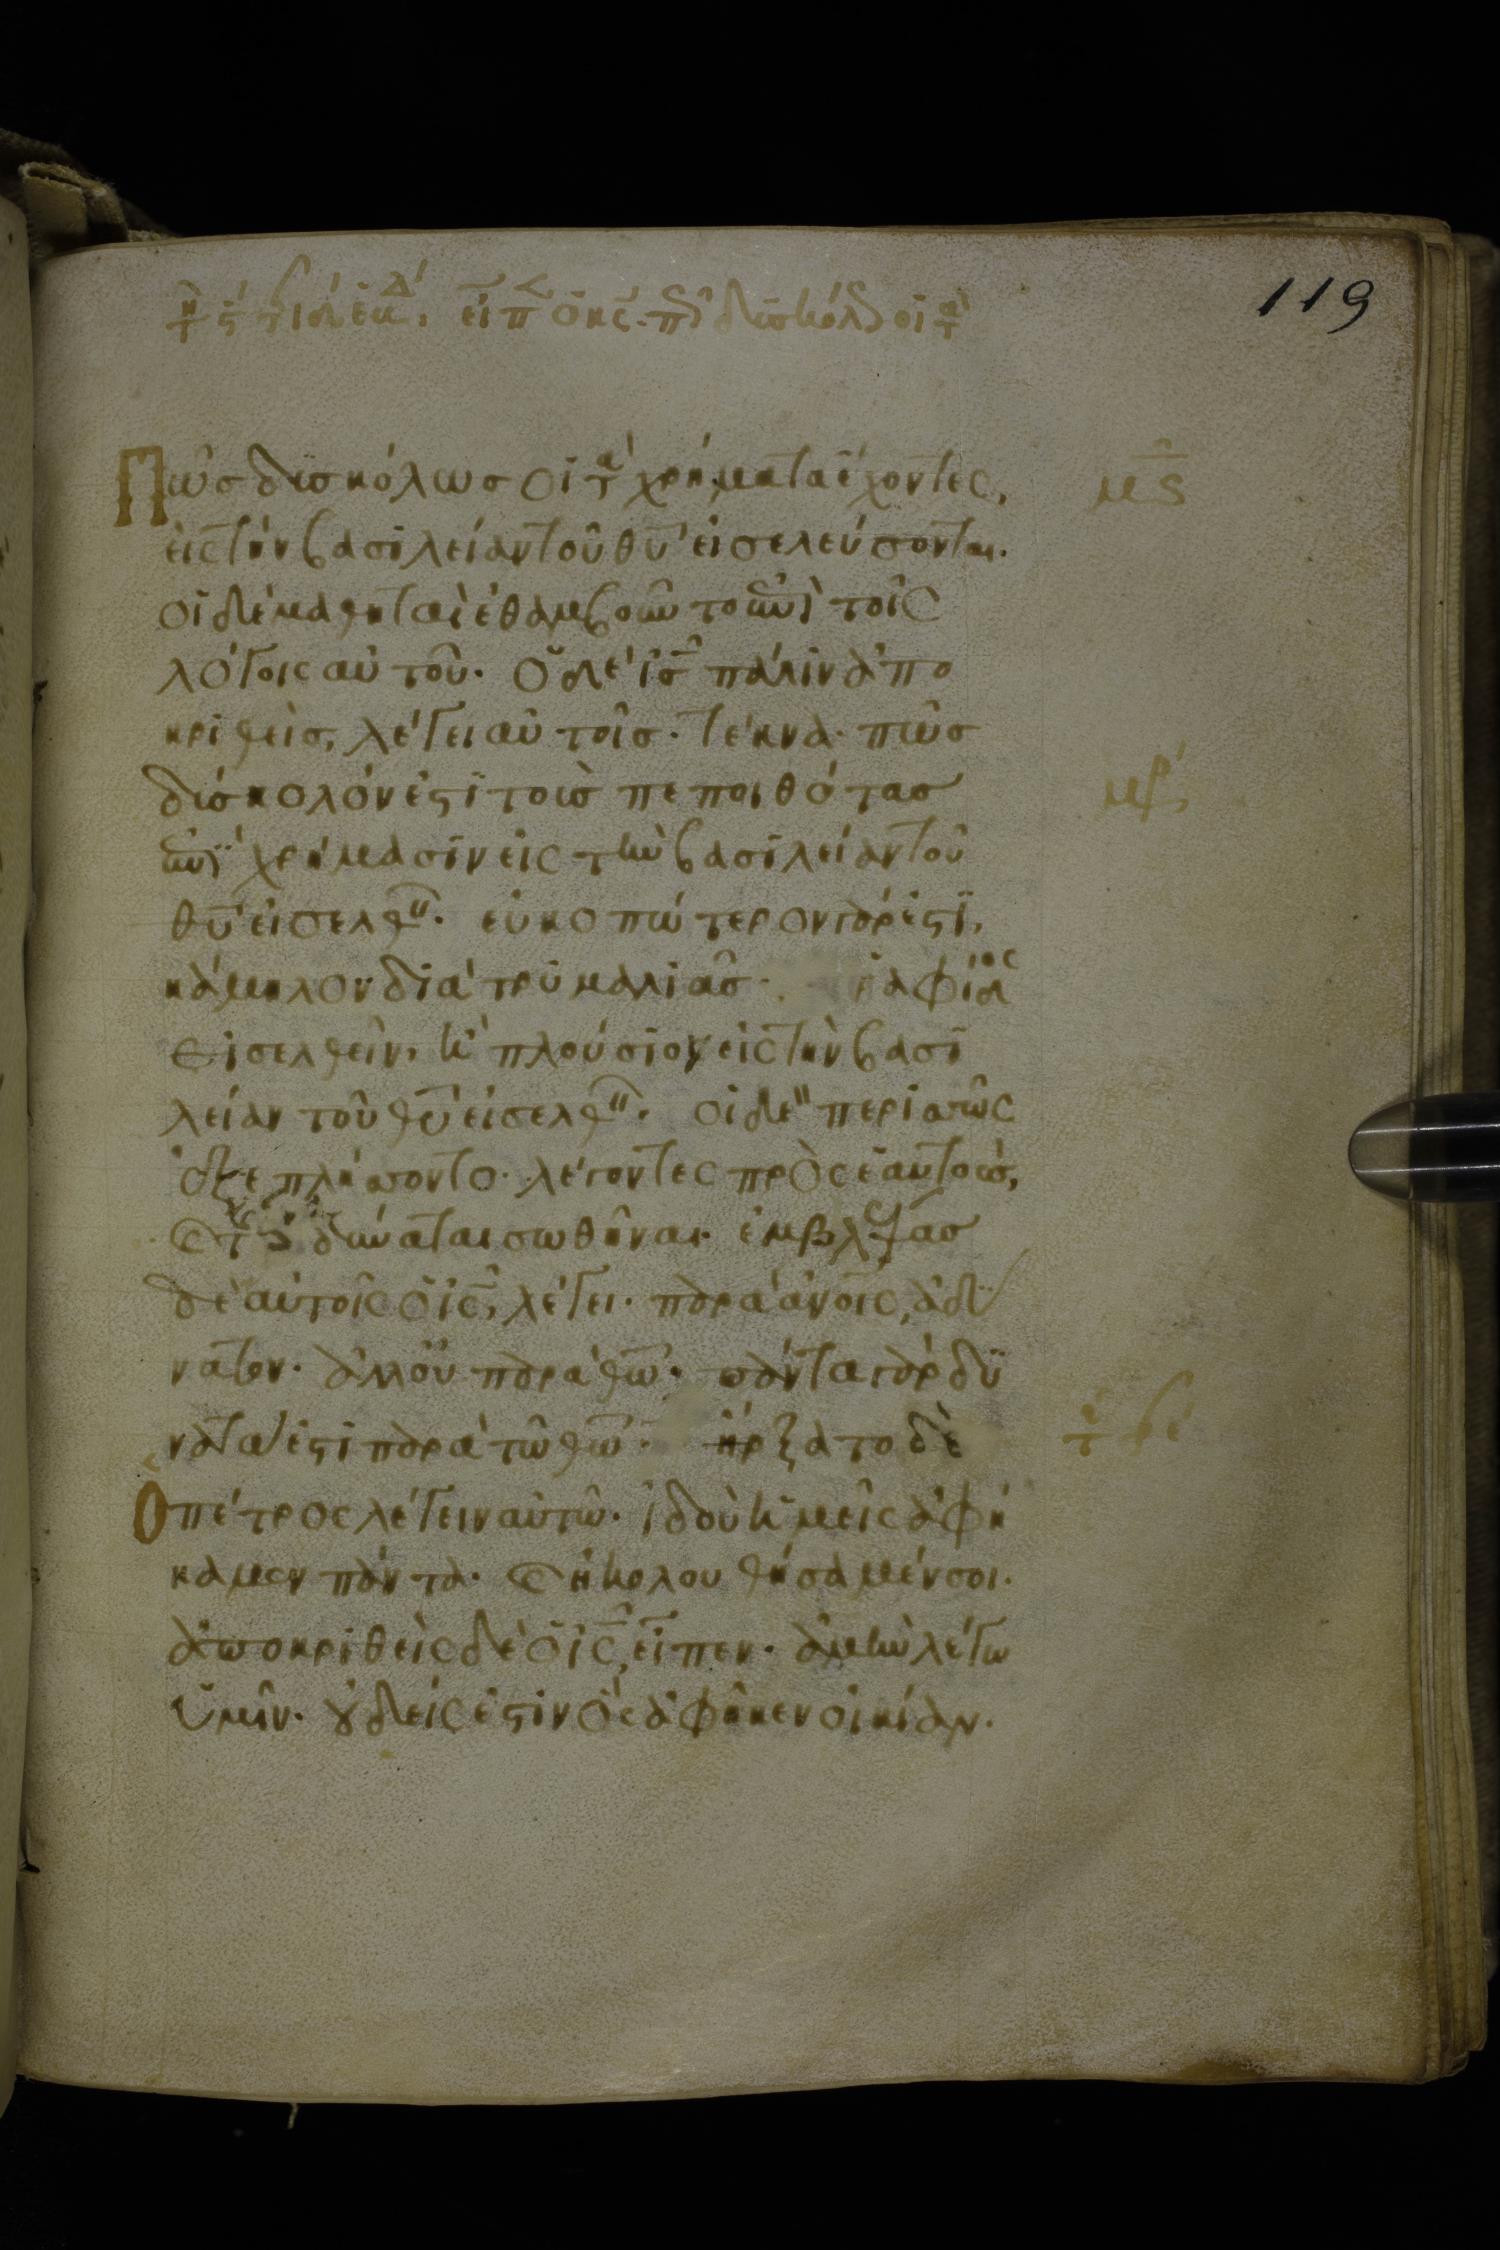 119
Πῶς δϊσκόλως οἱ τὰ χρήματα ἔχοντες,
εἰς τὴν βασιλείαν τοῦ θῡ εἰσελεύσονται.
οἱ δὲ μαθηταὶ ἐθαμβοῦντο ἐπὶ τοῖς
λόγοις αὐτοῦ. Ὁ δὲ ῑς̄ πάλιν ἀπο
κριθεὶς, λέγει αὐτοῖς. τέκνα. πῶς
δύσκολόν ἐστϊ τοὺς πεποιθότας
ἐπὶ χρήμασϊν εἰς τὴν βασιλείαν τοῦ
θῡ εἰσελθεῖν. εὐκοπώτερον γάρ ἐστϊ,
κάμηλον διὰ τρυμαλιᾶς ῥαφίδος
εἰσελθεῖν, ἢ πλούσϊον εἰς τὴν βασι
λείαν τοῦ θῡ εἰσελθεῖν. οἱ δὲ περισσῶς
ἐξεπλήσσοντο. λέγοντες πρὸς ἑαυτοὺς,
δύναται σωθῆναι. ἐμβλέψας
δὲ αὐτοῖς ὁ ῑς̄, λέγει. παρὰ ἀν̄οις, ἀδυ
νατον. ἀλλ' οὐ παρὰ θω̄. πάντα γὰρ δυ
νατά ἐστι παρὰ τῶ θω̄. ἤρξατο δὲ
Ὁ πέτρος λέγειν αὐτῶ. ἰδοὺ ἡμεῖς ἀφή
καμεν πάντα. καὶ ἠκολουθήσαμέν σοι.
ἀποκριθεὶς δὲ ὁ ῑς̄, εἶπεν. ἀμὴν λέγω
ὑμῖν. οὐδείς ἐστιν ὃς ἀφῆκεν οἰκίαν.